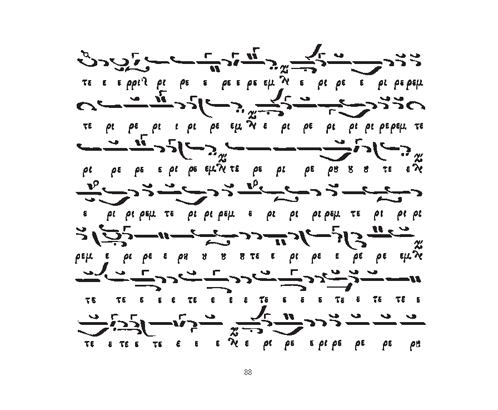 τε ε ε ρι ρε ε ρε ε ρε ρε εμ ε ρι ρε ρε ε ρι ρε ρεμ
τε ρι ρε ρι ι ρι ρε εμ ε ρι ρε ρι ρε ρι ρι ρε ρεμ τε
ρι ρε ρι ρε ε ρι ρε εμ τε ρε ρι ρε ρȣ ȣ ȣ τε ε
ε ρι ρι ρεμ τε ρι ρι ρεμ ε ρι ρι ρεμ τε ρι ρι ρι
ρεμ ε ρι ρε ε ρȣ ȣ ȣ τε ε ε ρι ρε ε ρε ε ρε εμ
τε τε ε ε ε τε ε ε ε τε ε ε ε τε ε τε τε τε
τε ε τε ε τε ε ε ε ε ρι ρε ε ρι ρε ρε ρε ρε ρȣ
88